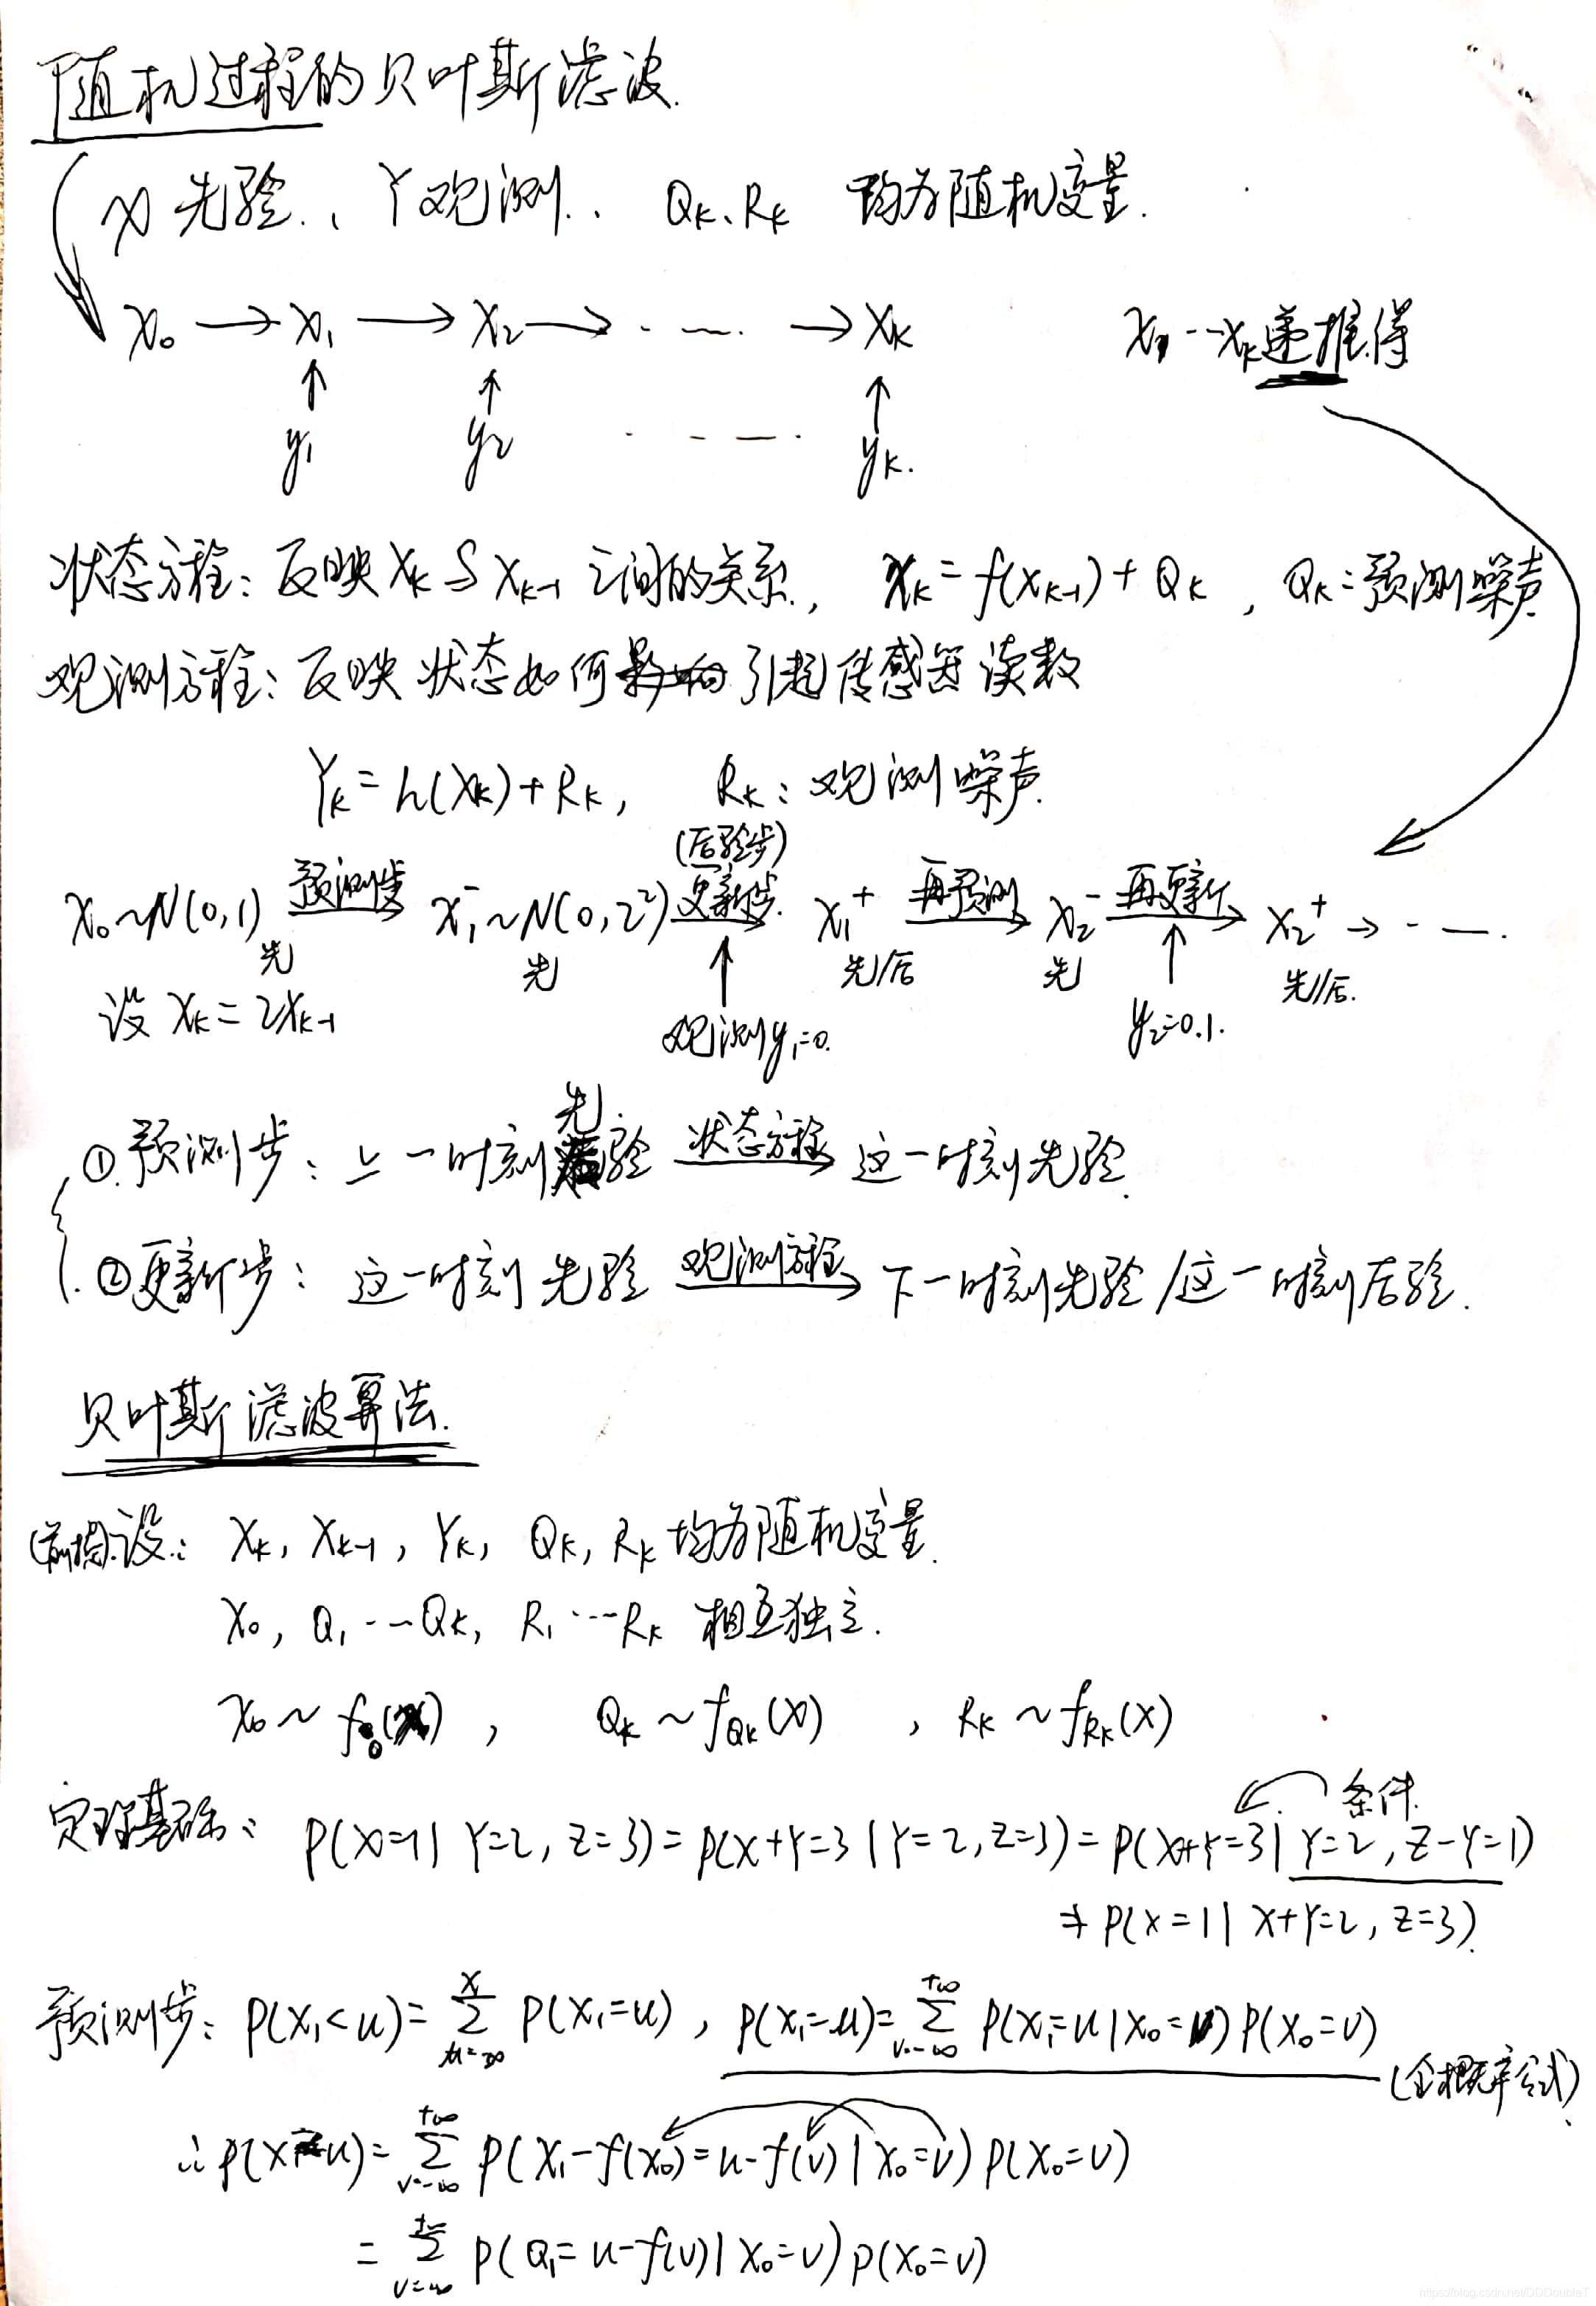 随机过程的贝叶斯滤波.
X 先验、Y观测、 Qk、Rk 均为随机变量.
X0 → X1 → X2 → ·····  → Xk
X1 --- Xk递推得
↑ ↑ ↑
y1 y2 · - — · yk.
状态方程: 反映Xk与Xk-1之间的关系, Xk = f(Xk-1) + Qk , Qk:预测噪声
观测方程: 反映 状态如何引起传感器读数
Yk = h(Xk) + Rk, Rk: 观测噪声.
(后验步)
X0~N(0,1) 预测步→ X1⁻~N(0,2²) 更新步→ X1⁺ 再预测→ X2⁻ 再更新→ X2⁺ → · — .
先 先 先/后 先 先/后.
设 Xk = 2Xk-1 ↑ 观测y1=0. ↑ y2=0.1.
先.
① 预测步: 上一时刻验 状态方程→ 这一时刻先验.
② 更新步: 这一时刻先验 观测方程→ 下一时刻先验/这一时刻后验.
贝叶斯滤波算法.
设: Xk, Xk-1, Yk, Qk, Rk 均为随机变量.
X0, Q1 ··· Qk, R1 ··· Rk 相互独立.
X0 ~ f0(x) , Qk ~ fQk(x) , Rk ~ fRk(x)
条件.
定理基础: P(X=1| Y=2, Z=3) = P(X+Y=3 | Y=2, Z=3) = P(X+Y=3 | Y=2, Z-Y=1)
≠ P(X=1| X+Y=2, Z=3).
预测步: P(X1<u) = Σ P(X1=u) , P(X1=u) = Σ_{v=-∞}^{+∞} P(X1=u | X0=v) P(X0=v)
(全概率公式)
∴ P(X1=u) = Σ_{v=-∞}^{+∞} P(X1-f(X0) = u-f(v) | X0=v) P(X0=v)
= Σ_{v=-∞}^{+∞} P(Q1 = u-f(v) | X0=v) P(X0=v)
https://blog.csdn.net/DDDoubleT